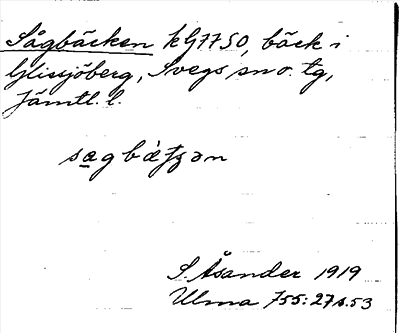 Sågbäcken kG7750, bäck i
Glissjöberg, Svegs sn o. tg,
Jämtl. l.
sagbætʂən
S. Åsander 1919
Ulma 755: 27 s. 53